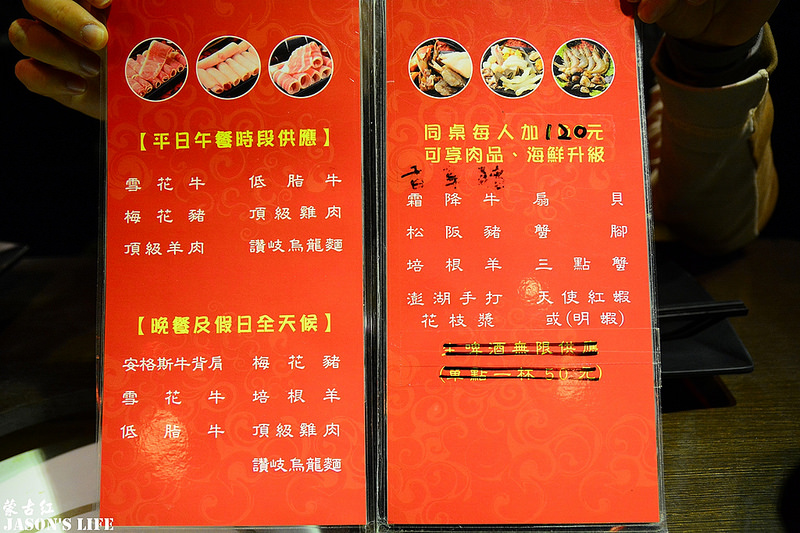 【平日午餐時段供應】
雪花牛 低脂牛
梅花豬 頂級雞肉
頂級羊肉 讚岐烏龍麵
【晚餐及假日全天候】
安格斯牛背肩 梅花豬
雪花牛 培根羊
低脂牛 頂級雞肉
讚岐烏龍麵
同桌每人加120元
可享肉品、海鮮升級
霜降牛 扇貝
松阪豬 蟹腳
培根羊 三點蟹
澎湖手打 天使紅蝦
花枝漿 或(明蝦)
啤酒無限供應
(單點一杯50元)
蒙古红
JASON'S LIFE